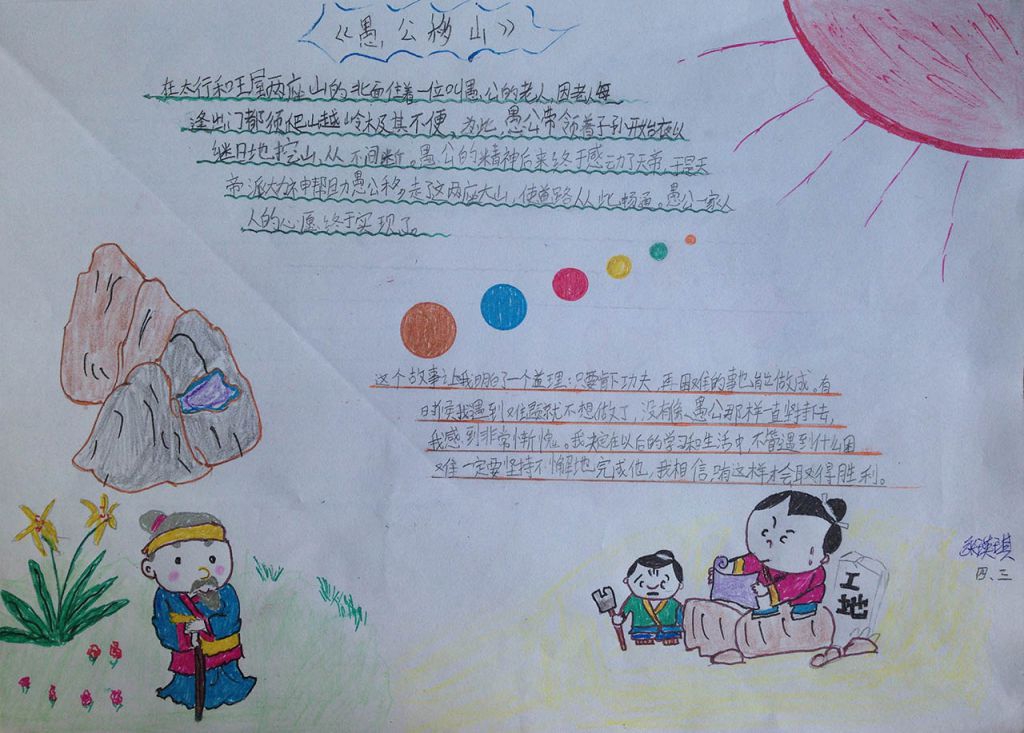 《愚公移山》
在太行和王屋两座山的北面住着一位叫愚公的老人,因老人每
逢出门都须爬山越岭极其不便,为此,愚公带领着子孙开始夜以
继日地挖山,从不间断。愚公的精神后来终于感动了天帝,于是天
帝派大力神帮助愚公移走了这两座大山,使道路从此畅通。愚公一家人
人的心愿终于实现了。
这个故事让我明白了一个道理:只要肯下功夫,再困难的事也能做成。有
时候我遇到难题就不想做了,没有像愚公那样一直坚持下去,
我感到非常惭愧。我决定在以后的学习和生活中,不管遇到什么困
难一定要坚持不懈地完成他,我相信,只有这样才会取得胜利。
工地
瑛琪
四、三